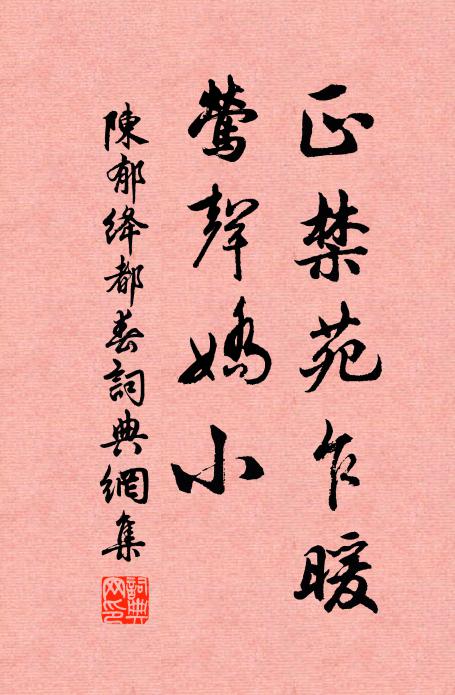 正禁苑乍暖
鶯聲嬌小
陳郁絳都春詞典網集
詞典网印